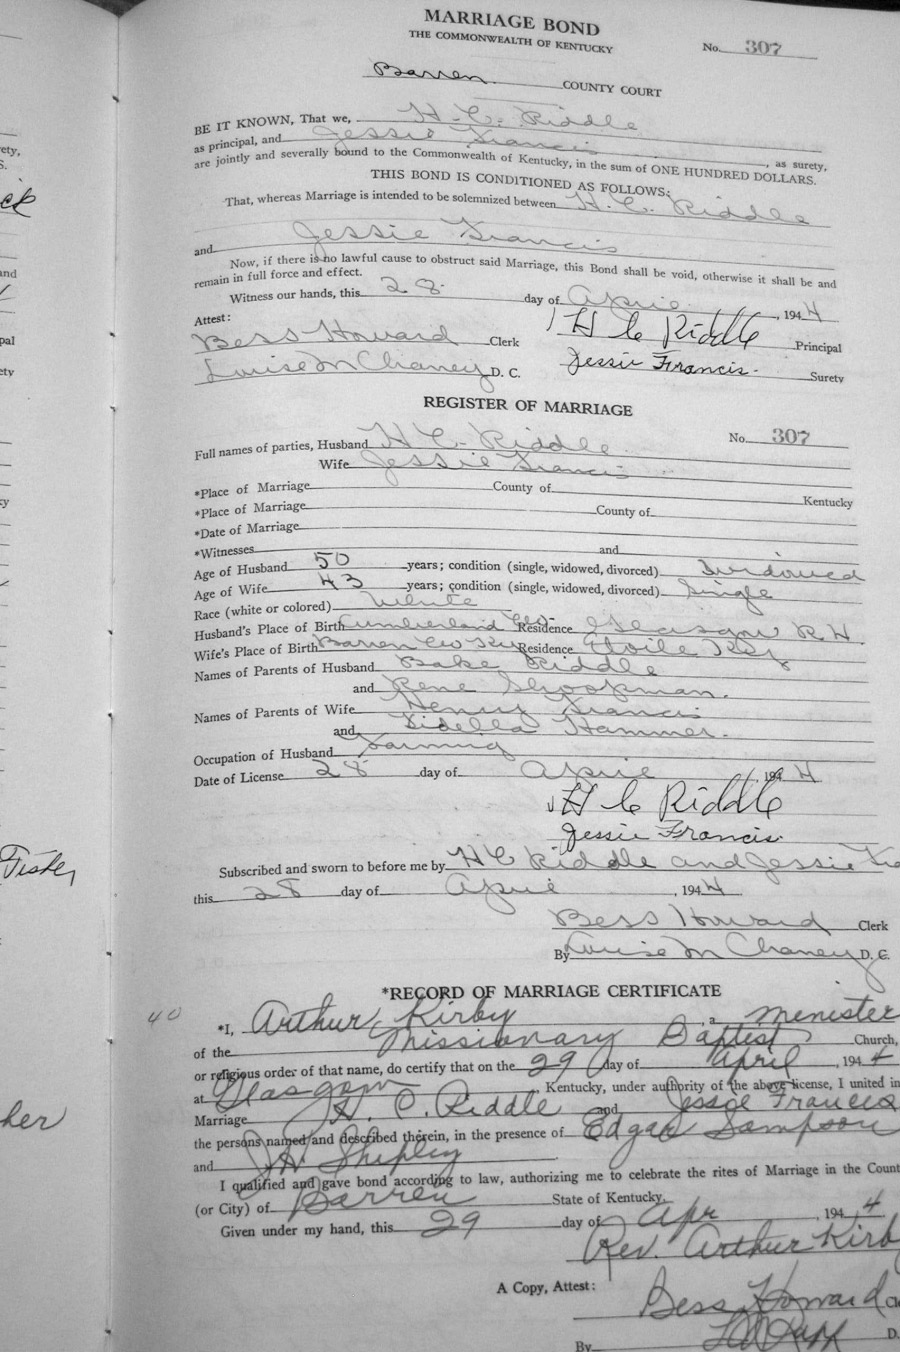 MARRIAGE BOND
THE COMMONWEALTH OF KENTUCKY
No. 307
Barren COUNTY COURT
BE IT KNOWN, That we, H. C. Riddle
as principal, and Jessie Francis, as surety,
are jointly and severally bound to the Commonwealth of Kentucky, in the sum of ONE HUNDRED DOLLARS.
THIS BOND IS CONDITIONED AS FOLLOWS:
That, whereas Marriage is intended to be solemnized between H. C. Riddle
and Jessie Francis
Now, if there is no lawful cause to obstruct said Marriage, this Bond shall be void, otherwise it shall be and
remain in full force and effect.
Witness our hands, this 28 day of April, 1944
Attest:
H C Riddle Principal
Bess Howard Clerk
Jessie Francis. Surety
Louise McChaney D. C.
REGISTER OF MARRIAGE
No. 307
Full names of parties, Husband H C. Riddle
Wife Jessie Francis
*Place of Marriage County of Kentucky
*Place of Marriage County of
*Date of Marriage
*Witnesses and
Age of Husband 50 years; condition (single, widowed, divorced) Widowed
Age of Wife 43 years; condition (single, widowed, divorced) Single
Race (white or colored) White
Husband's Place of Birth Cumberland Co. Residence Glasgow R.H.
Wife's Place of Birth Barren Co Ky Residence Etoile Ky
Names of Parents of Husband Bake Riddle
and Rene Shookman.
Names of Parents of Wife Henry Francis
and Fidella Hammer.
Occupation of Husband Farming
Date of License 28 day of April, 1944
H C Riddle
Jessie Francis
Subscribed and sworn to before me by H C Riddle and Jessie Fra
this 28 day of April, 1944
Bess Howard Clerk
By Louise McChaney D. C.
*RECORD OF MARRIAGE CERTIFICATE
40
*I, Arthur Kirby, a menister
of the Missionary Baptist Church,
or religious order of that name, do certify that on the 29 day of April, 1944
at Glasgow, Kentucky, under authority of the above license, I united in
Marriage H. C. Riddle and Jessie Francis
the persons named and described therein, in the presence of Edgar Sampson
and Shipley
I qualified and gave bond according to law, authorizing me to celebrate the rites of Marriage in the Count
(or City) of Barren State of Kentucky.
Given under my hand, this 29 day of Apr, 1944
Rev. Arthur Kirb
A Copy, Attest: Bess Howard Cl
By D.
ety,
S.
ck
and
pal
ety
Fisher
her